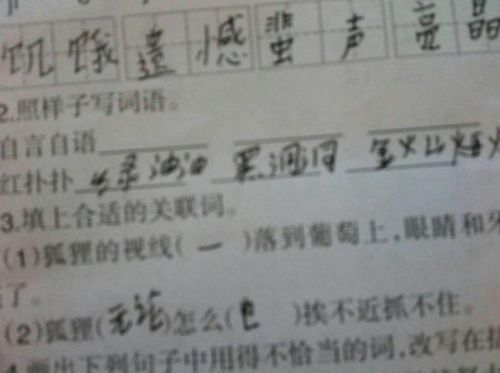 饥饿 遗憾 蜚声 亮晶
2.照样子写词语。
自言自语
红扑扑 绿油油 黑洞洞 金灿灿
3.填上合适的关联词。
(1)狐狸的视线( 一 )落到葡萄上,眼睛和牙
了。
(2)狐狸(无论)怎么( 也 )挨不近抓不住。
画出下列句子中用得不恰当的词,改写在括